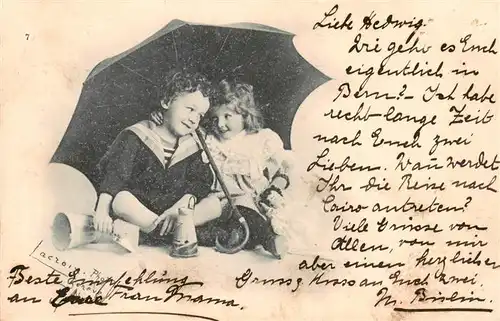 7
Liebe Hedwig.
Wie geht es Euch
eigentlich in
Bern? - Ich habe
recht lange Zeit
nach Euch zwei
Lieben. Wann werdet
Ihr die Reise nach
Cairo antreten?
Viele Grüsse von
Allen, von mir
aber einen herzlichen
Gruss & Kuss an Euch zwei.
Beste Empfehlung
an Frau Mama.
Lacroix